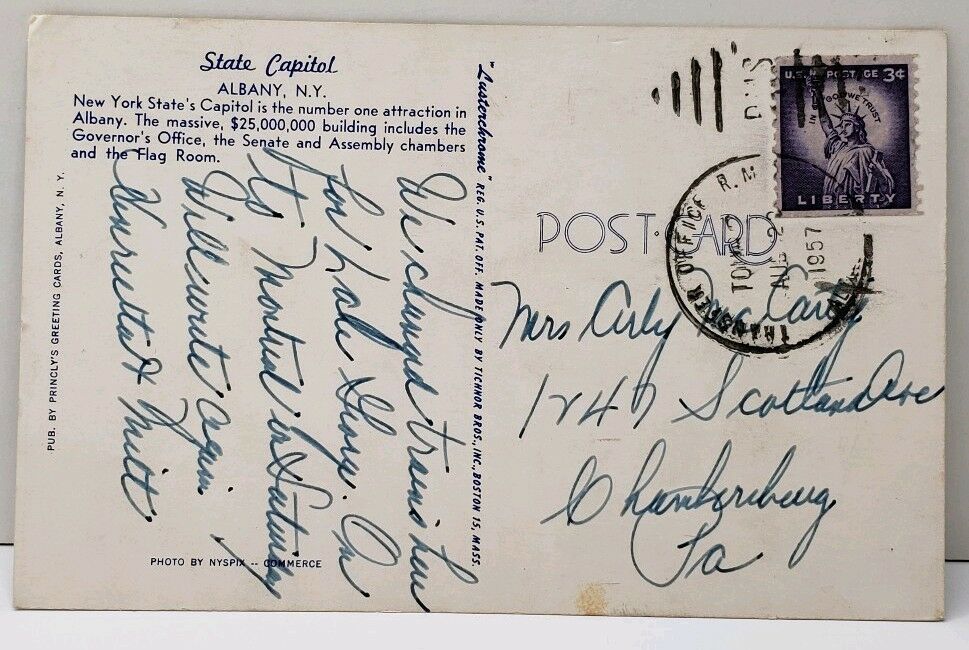 State Capitol
ALBANY, N.Y.
New York State's Capitol is the number one attraction in
Albany. The massive, $25,000,000 building includes the
Governor's Office, the Senate and Assembly chambers
and the Flag Room.
We changed trains here
for Lake George. On
to Montreal on Saturday
Will write again.
Henrietta & Milt
PUB. BY PRINCLY'S GREETING CARDS, ALBANY, N. Y.
PHOTO BY NYSPIX -- COMMERCE
"Lusterchrome" REG. U.S. PAT. OFF. MADE ONLY BY TICHNOR BROS., INC., BOSTON 15, MASS.
POST CARD
U.S. POSTAGE 3¢
IN GOD WE TRUST
LIBERTY
TRANSFER OFFICE R.M.
AUG 2
1957
Mrs Carey
1247 Scotland Ave
Chambersburg
Pa